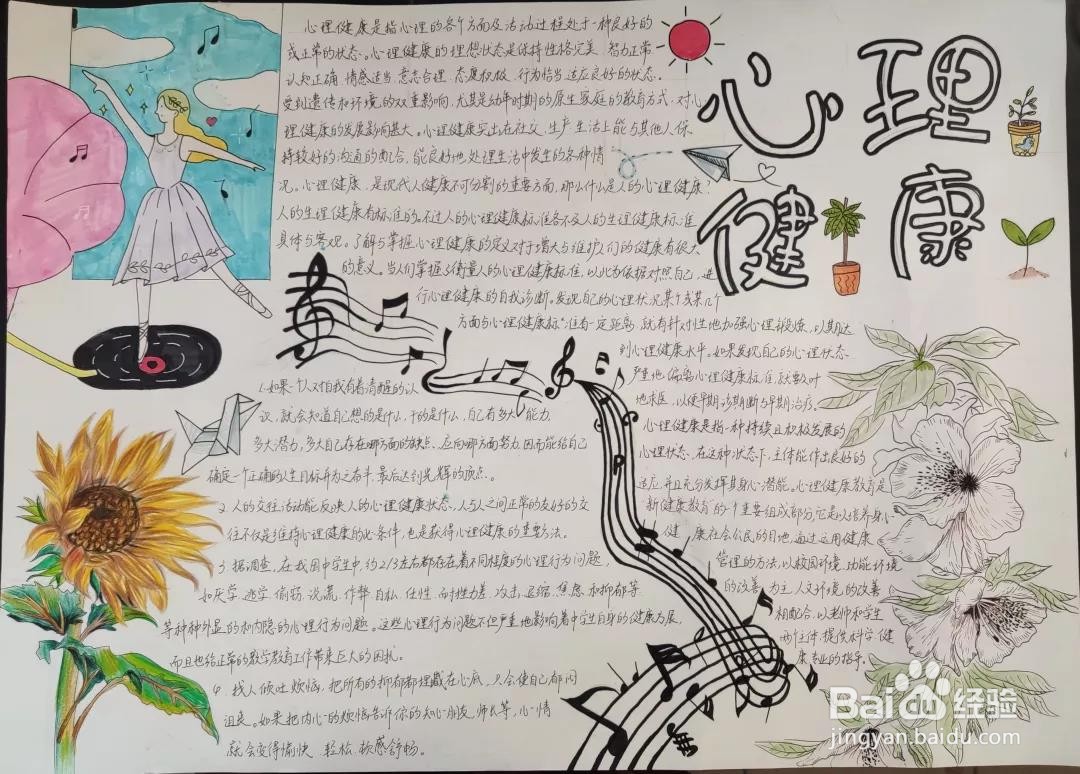 心理健康
心理健康是指心理的各个方面及活动过程处于一种良好的
或正常的状态。心理健康的理想状态是保持性格完美、智力正常
认知正确、情感适当、意志合理、态度积极、行为恰当、适应良好的状态。
受到遗传和环境的双重影响,尤其是幼年时期的原生家庭的教育方式,对心
理健康的发展影响甚大。心理健康突出在社交、生产、生活上能与其他人保
持较好的沟通的配合,能良好地处理生活中发生的各种情
况。心理健康,是现代人健康不可分割的重要方面,那么什么是人的心理健康?
人的生理健康有标准的,不过人的心理健康标准各不及人的生理健康标准
具体与客观。了解与掌握心理健康的定义对于增大与维护人们的健康有很大
的意义。当人们掌握了衡量人的心理健康标准,以此为依据对照自己,进
行心理健康的自我诊断。发现自己的心理状况某个或某几个
方面与心理健康标准有一定距离,就有针对性地加强心理锻炼,以期达
到心理健康水平。如果发现自己的心理状态
严重地偏离心理健康标准,就要及时
地求医,以便早期诊断与早期治疗。
心理健康是指一种持续且积极发展的
心理状态,在这种状态下,主体能作出良好的
适应,并且充分发挥其身心潜能。心理健康教育是
新健康教育的一个重要组成部分,它是以培养身心
健康社会公民的目地,通过运用健康
管理的方法,以校园环境、功能环境
的改善为主,人文环境的改善
相配合,以老师和学生
为主体,提供科学、健
康专业的指导。
1. 如果一个人对自我有着清醒的认
识,就会知道自己想的是什么,干的是什么,自己有多大能力、
多大潜力,多大自己存在哪方面的缺点,应向哪方面努力,因而能给自己
确定一个正确的人生目标并为之奋斗,最后达到光辉的顶点。
2. 人的交往活动能反映人的心理健康状态,人与人之间正常的友好的交
往不仅是维持心理健康的必备条件,也是获得心理健康的重要方法。
3. 据调查,在我国中学生中,约2/3左右都存在着不同程度的心理行为问题,
如厌学、逃学、偷窃、说谎、作弊、自私、任性、耐挫力差、攻击、退缩、焦虑和抑郁等
等种种外显的和内隐的心理行为问题。这些心理行为问题不但严重地影响着中学生自身的健康发展,
而且也给正常的教学教育工作带来巨大的困扰。
4. 找人倾吐烦恼,把所有的抑郁都埋藏在心底,只会使自己郁闷
沮丧。如果把内心的烦恼告诉你的知心朋友、师长等,心情
就会变得愉快、轻松、软感舒畅。
Baidu经验
jingyan.baidu.com